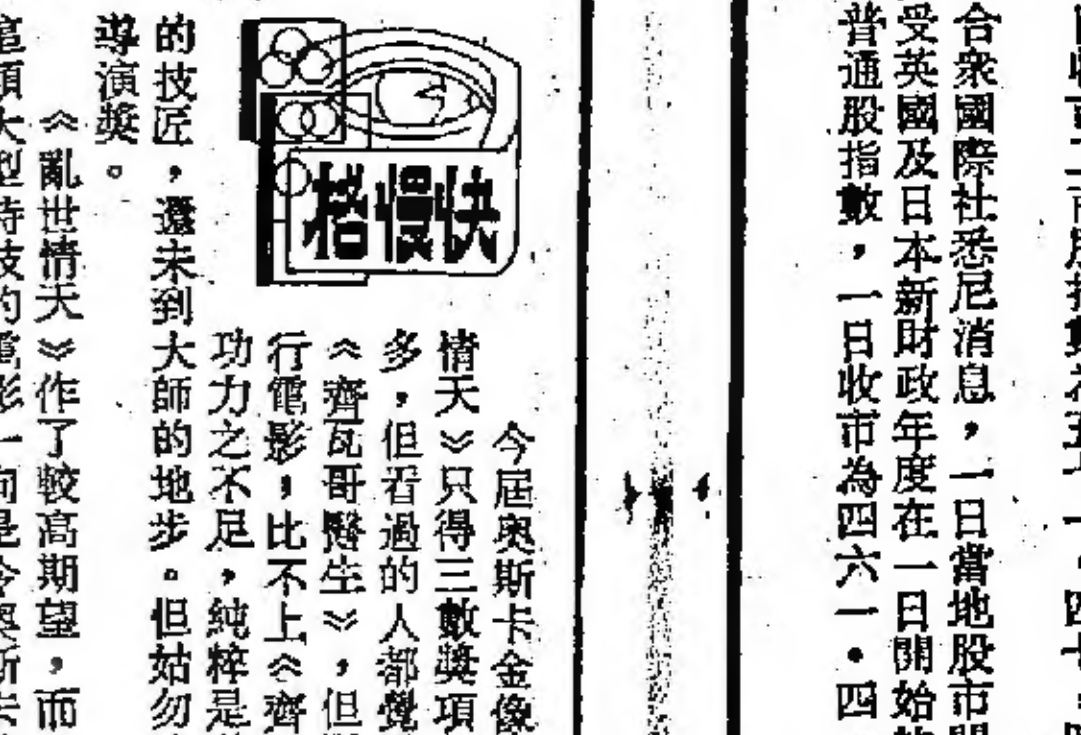 合衆國際社悉尼消息，一日當地股市
受英國及日本新財政年度在一日開始
普通股指數，一日收市為四六一·四
快慢格
今屆奧斯卡金像
情天》只得三數獎項
多，但看過的人都覺
《齊瓦哥醫生》，但
行電影，比不上《齊
功力之不足，純粹是
的技匠，還未到大師的地步。但姑勿
導演獎。
《亂世情天》作了較高期望，而